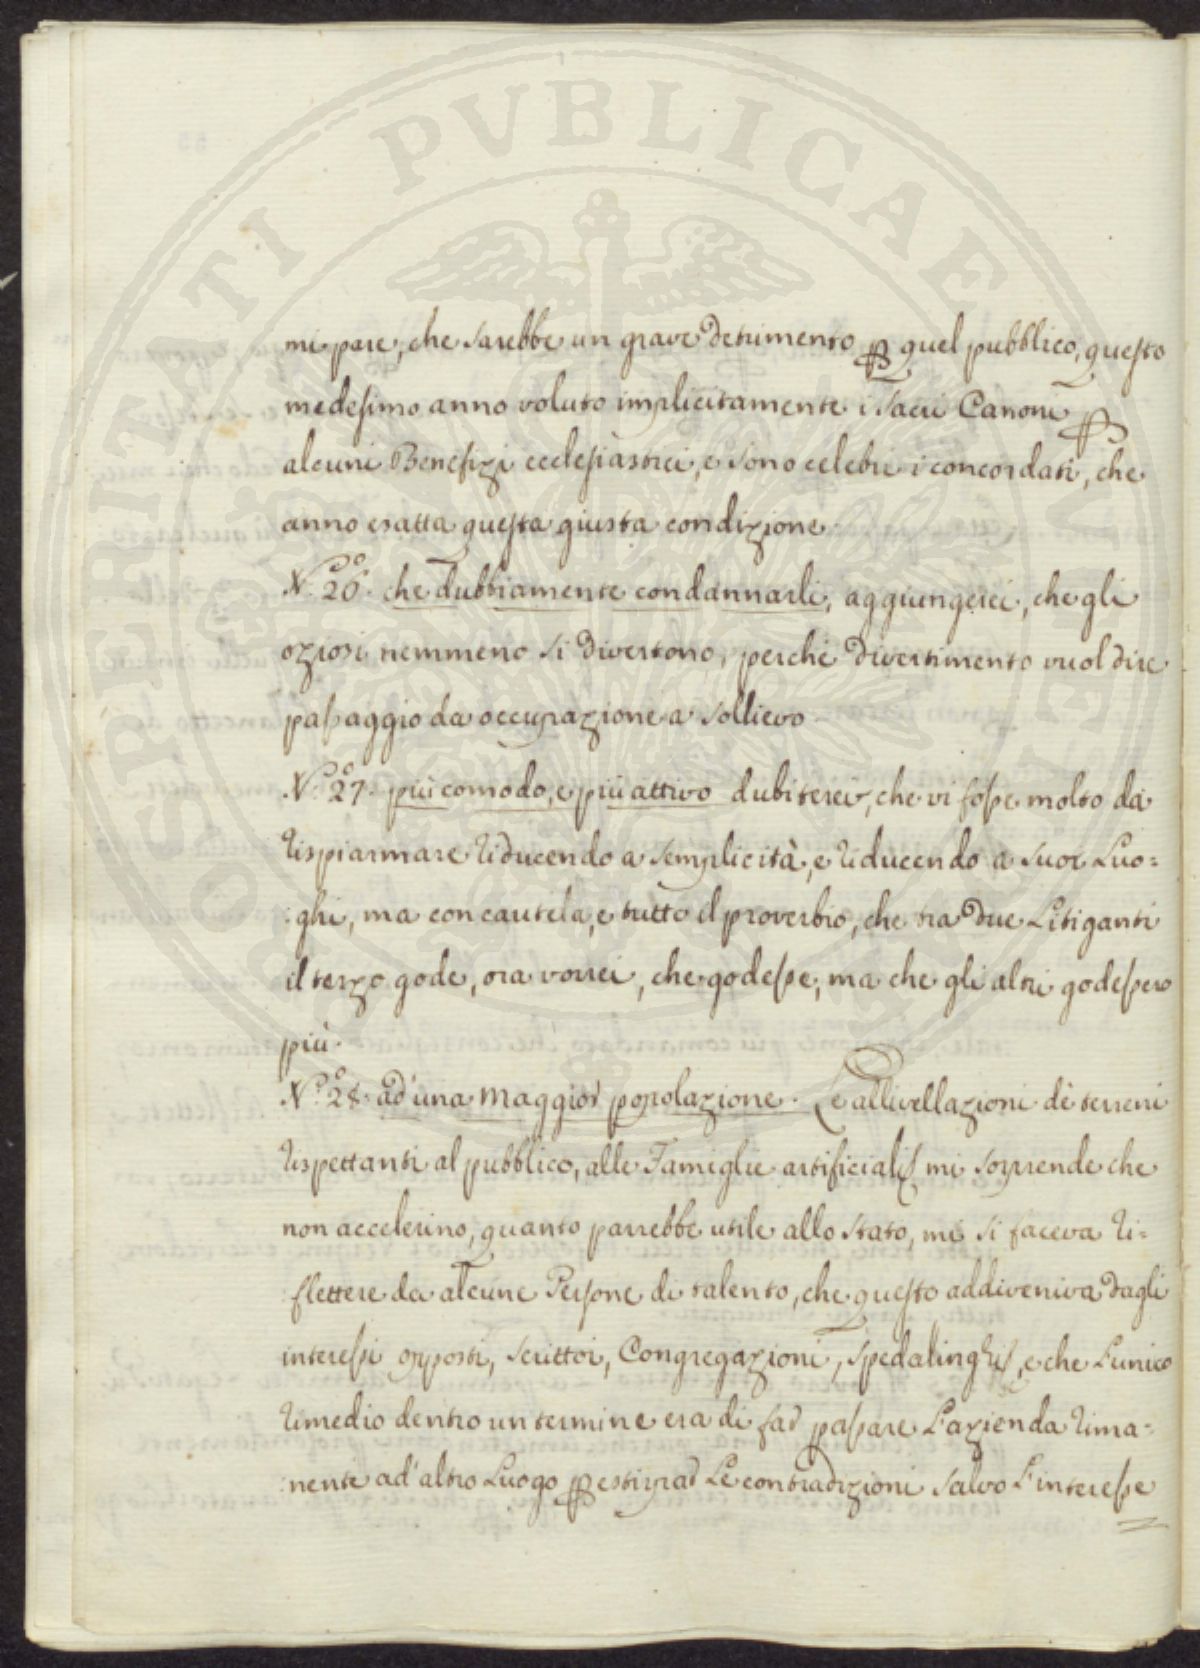 PROSPERITATI PVBLICAE
mi pare, che sarebbe un grave detrimento p quel pubblico, questo
medesimo anno voluto implicitamente i Sacri Canoni p
alcuni Benefizi ecclesiastici, e sono celebri i concordati, che
anno esatta questa giusta condizione
N.º 26.º che dubbiamente condannarli, aggiungerei, che gli
oziosi nemmeno si divertono, perchè divertimento vuol dire
passaggio da occupazione a sollievo
N.º 27.º più comodo, e più attivo dubiterei, che vi fosse molto da
risparmare riducendo a semplicità, e riducendo a suoi Luo=
:ghi, ma con cautela, e tutto il proverbio, che tra due Litiganti
il terzo gode, ora vorrei, che godesse, ma che gli altri godessero
più.
N.º 28. ad una maggior popolazione. Le allivellazioni de terreni
rispettanti al pubblico, alle Famiglie artificiali mi sorprende che
non accelerino, quanto parrebbe utile allo stato, mi si faceva ri=
:flettere da alcune Persone di talento, che questo addiveniva dagli
interessi opposti, scrittoi, Congregazioni, Spedalinghi, e che L'unico
rimedio dentro un termine era di far passare L'azienda rima=
:nente ad altro Luogo p estirpar Le contradizioni salvo L'interesse